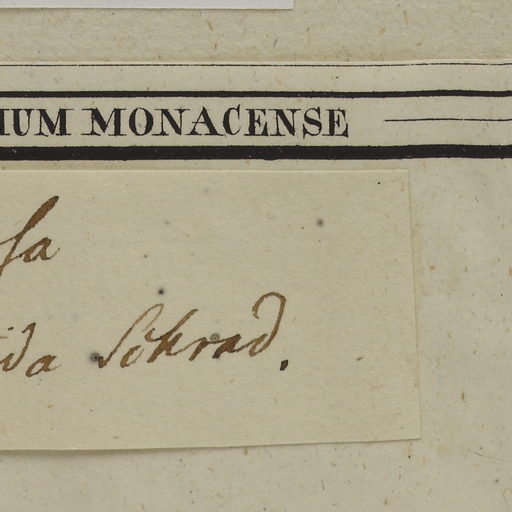 IUM MONACENSE
sa
ida Schrad.